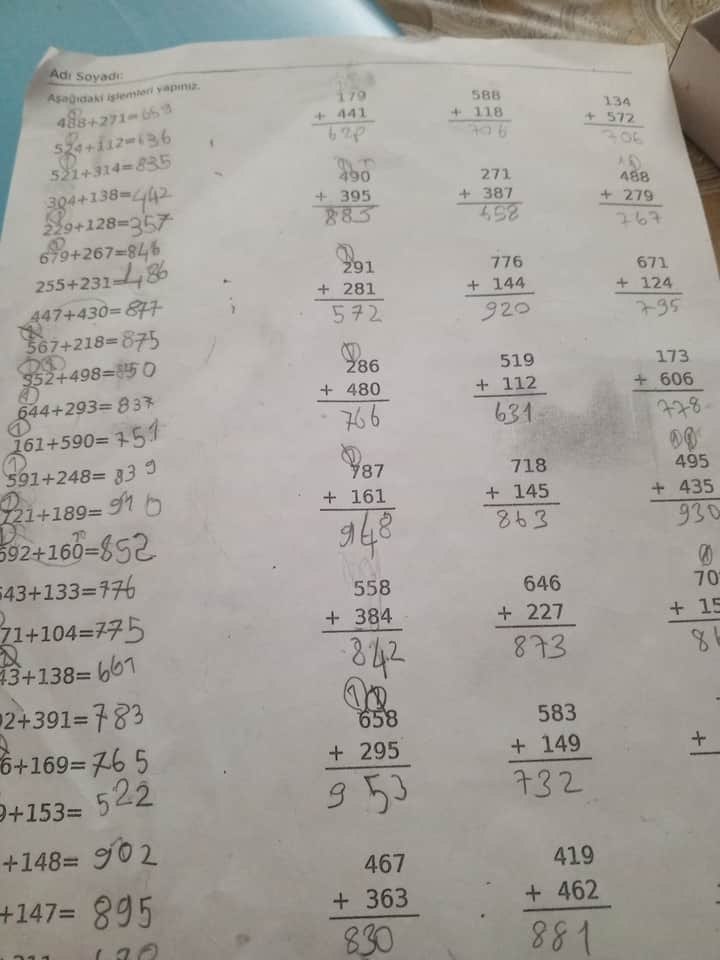 Adı Soyadı:
Aşağıdaki işlemleri yapınız.
488+271=659
524+112=636
521+314=835
304+138=442
229+128=357
679+267=846
255+231=486
447+430=877
567+218=875
352+498=850
644+293=837
161+590=751
591+248=839
721+189=910
692+160=852
643+133=776
71+104=775
43+138=661
92+391=783
6+169=765
9+153=522
+148=902
+147=895
179
+ 441
620
588
+ 118
706
134
+ 572
706
490
+ 395
885
271
+ 387
658
488
+ 279
767
291
+ 281
572
776
+ 144
920
671
+ 124
795
286
+ 480
766
519
+ 112
631
173
+ 606
778
787
+ 161
948
718
+ 145
863
495
+ 435
930
558
+ 384
842
646
+ 227
873
70
+ 15
658
+ 295
953
583
+ 149
732
+
467
+ 363
830
419
+ 462
881